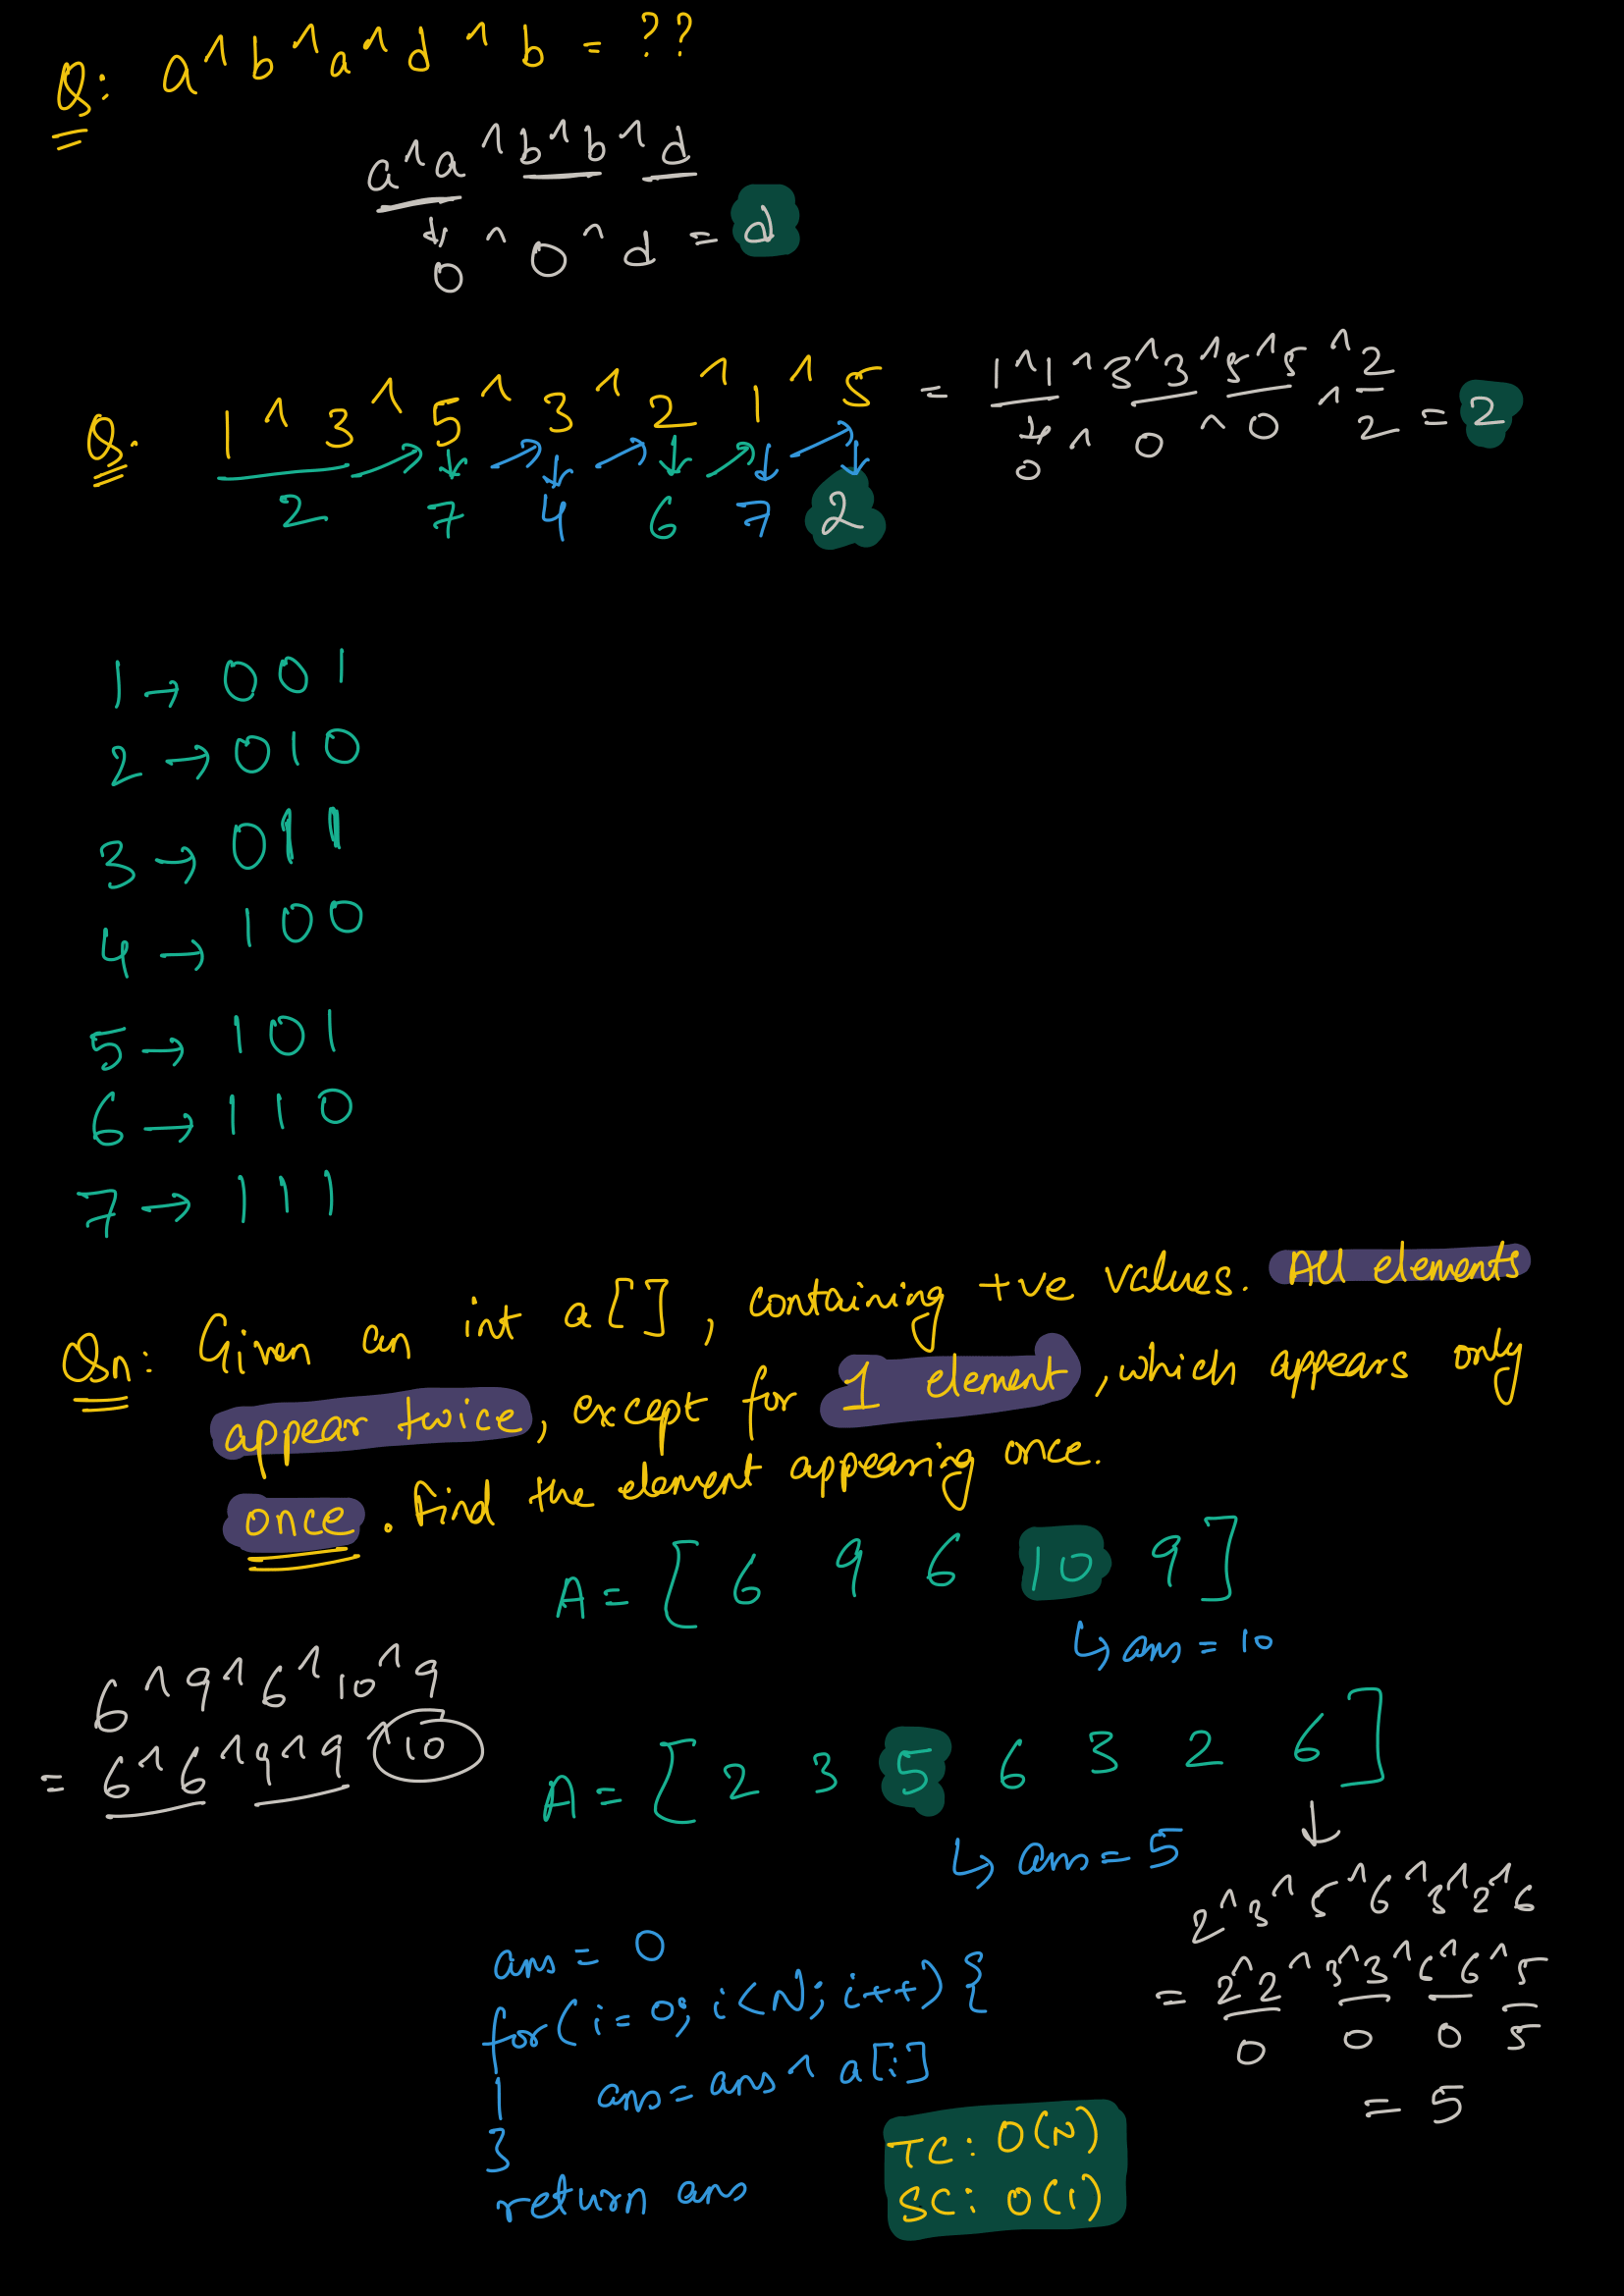 Q: a^b^a^d^b = ??
a^a^b^b^d
0^0^d = d
Q. 1^3^5^3^2^1^5 = 1^1^3^3^5^5^2
0^0^0^2 = 2
2 7 4 6 7 2
1 → 001
2 → 010
3 → 011
4 → 100
5 → 101
6 → 110
7 → 111
Qn: Given an int a[], containing +ve values. All elements
appear twice, except for 1 element, which appears only
once. Find the element appearing once.
A = [6 9 6 10 9]
↳ ans = 10
6^9^6^10^9
= 6^6^9^9^10
A = [2 3 5 6 3 2 6]
↳ ans = 5
2^3^5^6^3^2^6
= 2^2^3^3^6^6^5
0 0 0 5
= 5
ans = 0
for(i=0; i<N; i++) {
ans = ans ^ a[i]
}
return ans
TC: O(N)
SC: O(1)